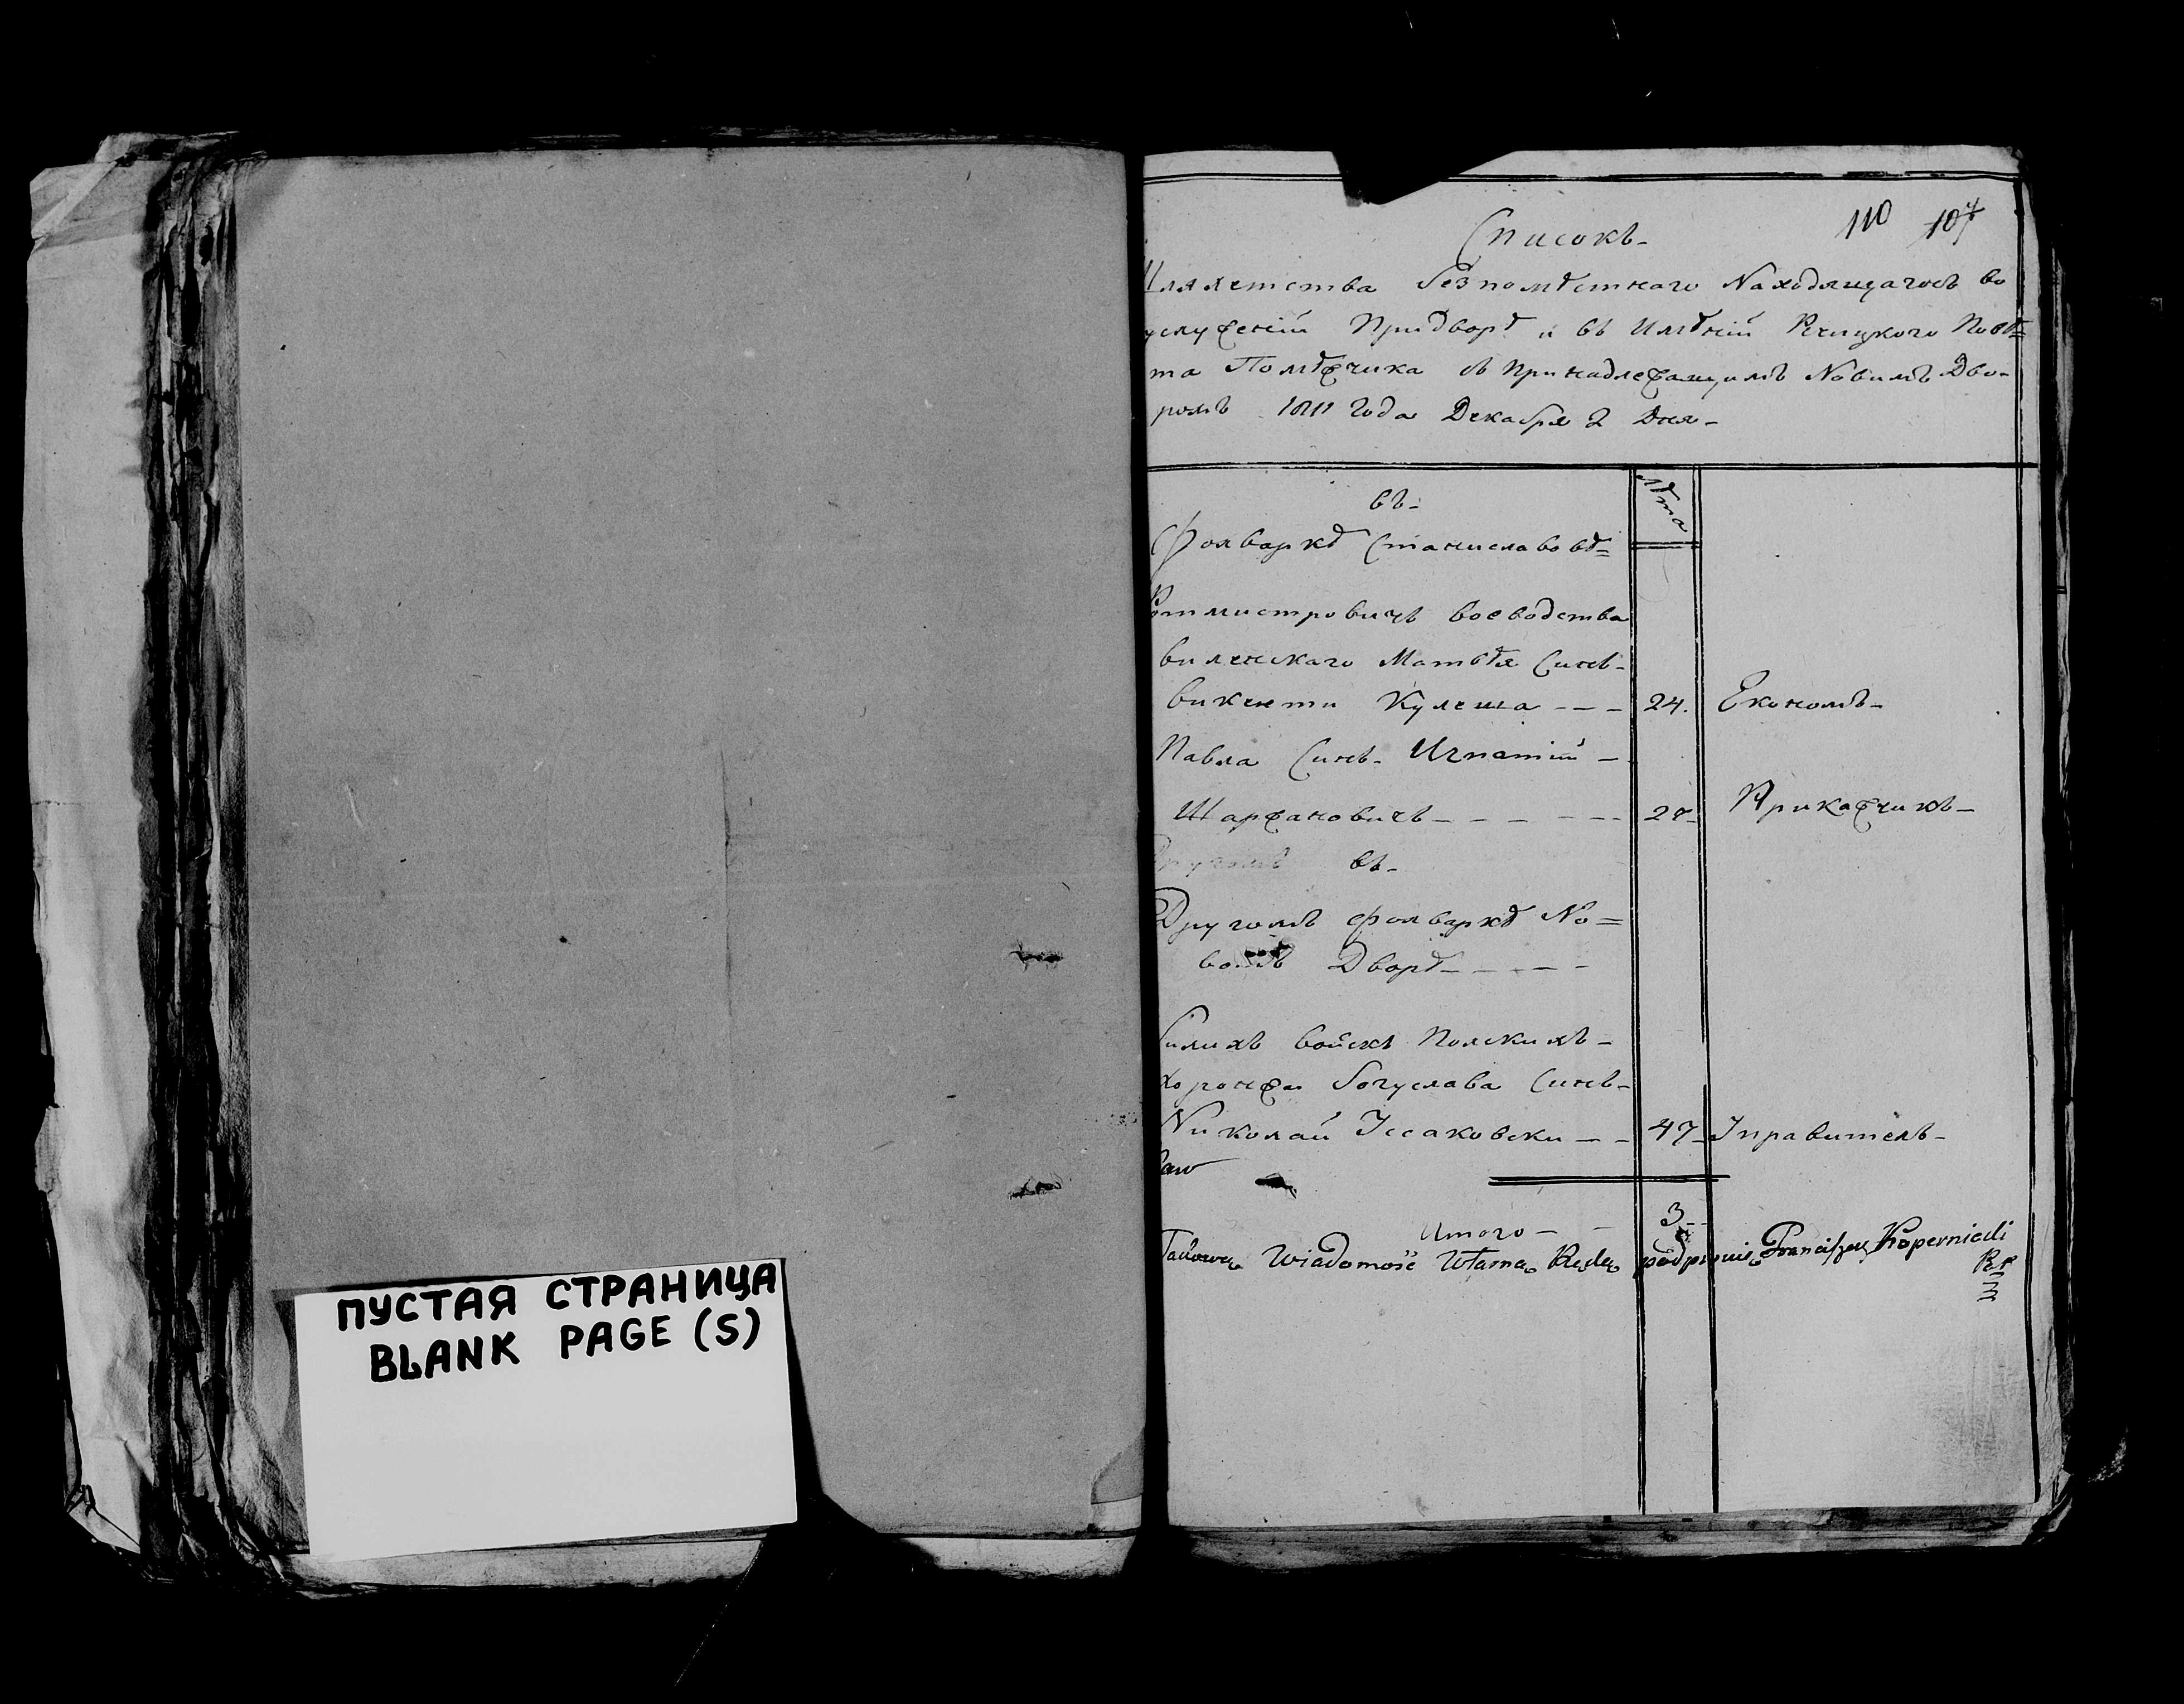 ПУСТАЯ СТРАНИЦА
BLANK PAGE (S)
110 107
Списокъ-
Шляхетства безпомѣстнаго Находящагосъ во
услуженіи Придворѣ и въ Имѣніи Речицкого Повѣ=
та Помѣжчика съ принадлежащимъ Новимъ Дво-
ромъ 1811 Года Декабря 2 Дня-
Лѣта
въ-
Фолваркѣ Станиславовѣ=
Ротмистровичъ Воеводства
виленскаго Матвѣя Синъ-
викенти Кулеша --- 24. Економъ-
Павла Синъ- Игнатіи -
Шаржановичъ- - - - - - 27- Прикажчикъ-
Другомъ въ-
Другомъ фолваркѣ Но=
вомъ Дворѣ- - - - -
билихъ войскъ Полскихъ-
хоронжа Богуслава Синъ-
Николай Іссаковски - - 47- Управитель-
Итого- - 3--
Takową Wiadomość Własną Ręką podpisuię Franciszek Kopernicki